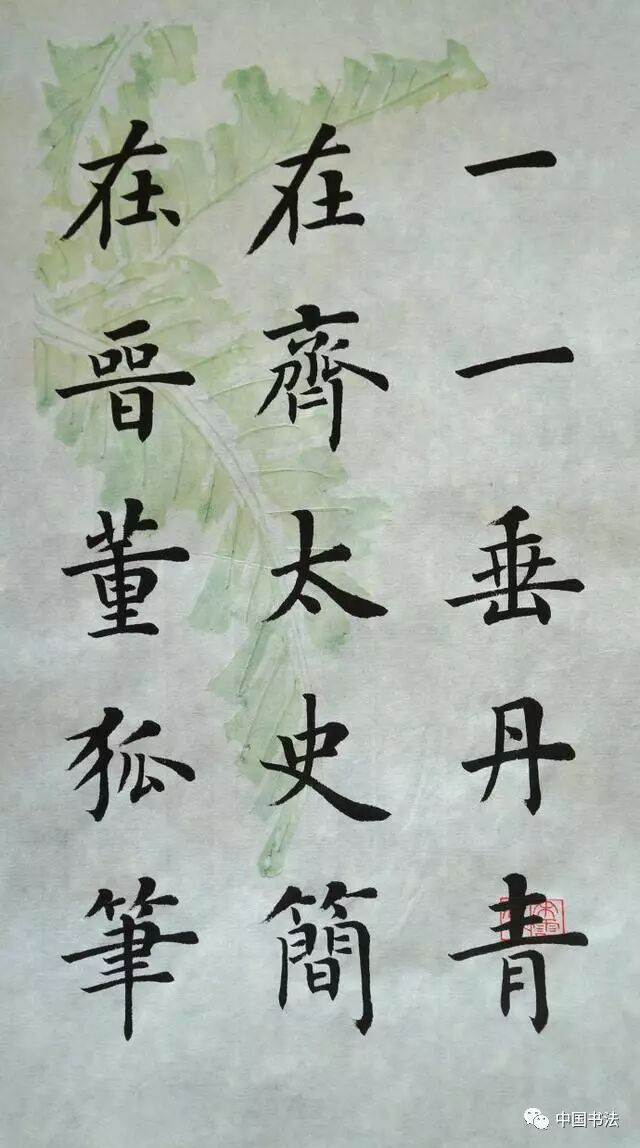 一一垂丹青
在齊太史簡
在晉董狐筆
中国书法